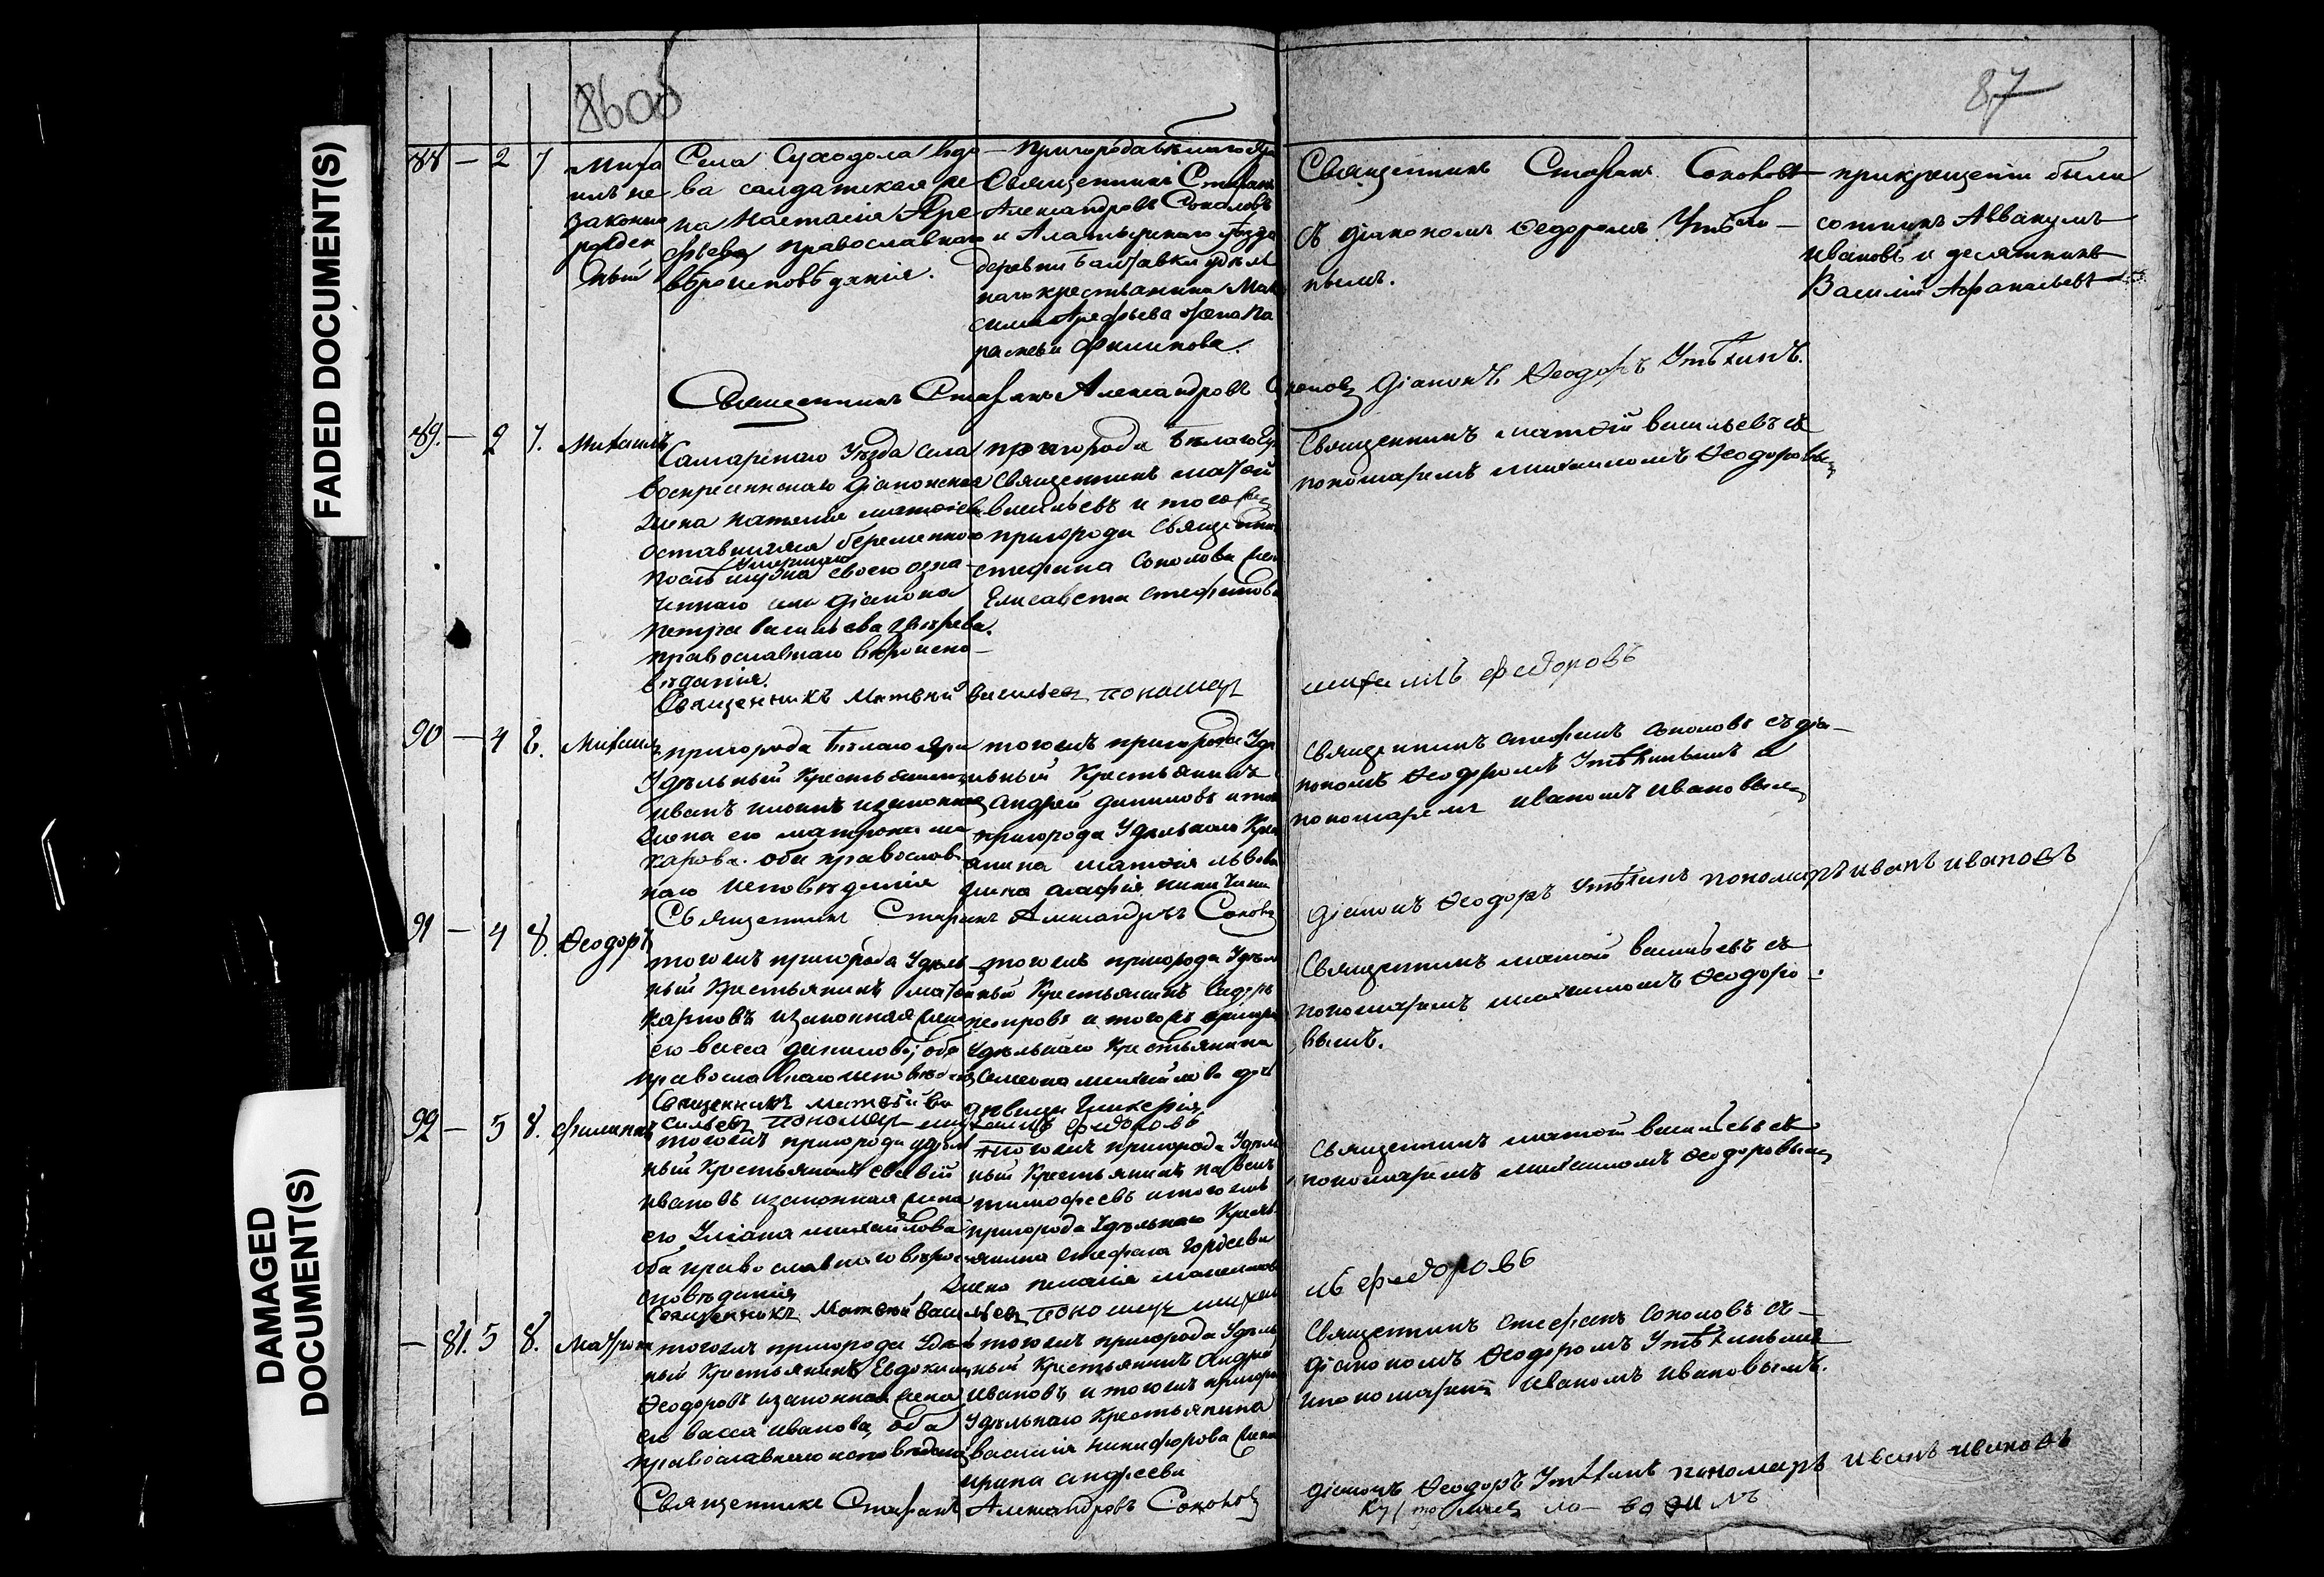 FADED DOCUMENT(S)
DAMAGED
DOCUMENT(S)
87
88 — 2 7
Миха
илъ не
законно
рожден
ный
Села Суходола вдо
ва салдатская же
на Настасія Аре
фьева православнаго
вѣроисповѣданія.
Пригорода бѣлаго Яра
Священникъ Стефанъ
Александровъ Соколовъ
и
деревни удѣль
наго крестьянина Мак
сима Арефьева жена Па
раскева Филипова.
Священникъ Стефанъ Соколовъ
съ діакономъ Ѳедоромъ Утѣхи—
нымъ.
прикрещеніи были
сотникъ Аввакумъ
Ивановъ и десятникъ
Василій Афанасьевъ
Священникъ Стефанъ Александровъ Соколовъ Діаконъ Ѳеодоръ Утѣхинъ.
89. — 2 7. Михаилъ
Самарскаго Уѣзда села
воскресенскаго діаконская
жена
оставшаяся беременною
умершаго
послѣ мужа своего озна
ченнаго села діакона
Петра васильева
православнаго вѣроиспо—
вѣданія.
пригорода бѣлаго Яра
священникъ матѳей
васильевъ и того же
пригорода священника
стефана соколова жена
Елисавета стефанова
Священникъ матѳей васильевъ съ
пономаремъ михаиломъ Ѳеодоровымъ
Священникъ Матвѣй васильевъ пономарь михаилъ федоровъ
90 — 4 8. Михаилъ
пригорода бѣлаго яра
Удѣльный Крестьянинъ
иванъ изаконная
жена его матрона ма
карова. оба православ
наго исповѣданія
тогожъ пригорода Удѣ
льный Крестьянинъ
андрей даниловъ и того
пригорода Удѣльнаго Крес
янина матѳія львова
жена агафія никитина
священникъ стефанъ соколовъ съ діа—
кономъ Ѳеодоромъ Утѣхинымъ и
пономаремъ иваномъ ивановымъ
Священникъ Стефанъ Александровъ Соколовъ
діаконъ Ѳеодоръ Утѣхинъ пономаръ иванъ ивановъ
91 — 4 8. Ѳеодоръ
тогожъ пригорода Удѣль
ный Крестьянинъ матѳей
карповъ изаконная жена
его васса данилова, оба
православнаго исповѣданія
тогожъ пригорода Удѣль
ный Крестьянинъ сидоръ
петровъ и тогожъ пригоро
Удѣльнаго Крестьянина
семена михайлова дочь
дѣвица Гликерія
Священникъ матѳей васильевъ съ
пономаремъ михаиломъ Ѳеодоро—
вымъ.
Священникъ матвѣй ва
сильевъ пономарь михаилъ федоровъ
92 — 5 8. филиппъ
тогожъ пригорода удѣль
ный Крестьянинъ
ивановъ изаконная жена
его Уліана михайлова
оба православнаго вѣрои
сповѣданія
тогожъ пригорода Удѣль
ный Крестьянинъ павелъ
тимофеевъ итогожъ
пригорода Удѣльнаго Кресть
янина стефана Гордеева
жена
священникъ матѳей васильевъ съ
пономаремъ михаиломъ Ѳеодоровымъ
Священникъ Матвѣй васильевъ пономарь михаилъ федоровъ
— 81. 5 8. Матрона
тогожъ пригорода Удѣль
ный Крестьянинъ Евдокимъ
Ѳеодоровъ изаконная жена
его васса иванова, оба
православнаго исповѣданія
тогожъ пригорода Удѣль
ный Крестьянинъ андрей
ивановъ, и тогожъ пригоро
Удѣльнаго Крестьянина
василія никифорова жена
ирина андреева
священникъ стефанъ соколовъ съ—
діакономъ Ѳеодоромъ Утѣхинымъ
ипономаремъ иваномъ ивановымъ.
Священникъ Стефанъ Александровъ Соколовъ
діаконъ Ѳеодоръ Утѣхинъ пономаръ иванъ ивановъ